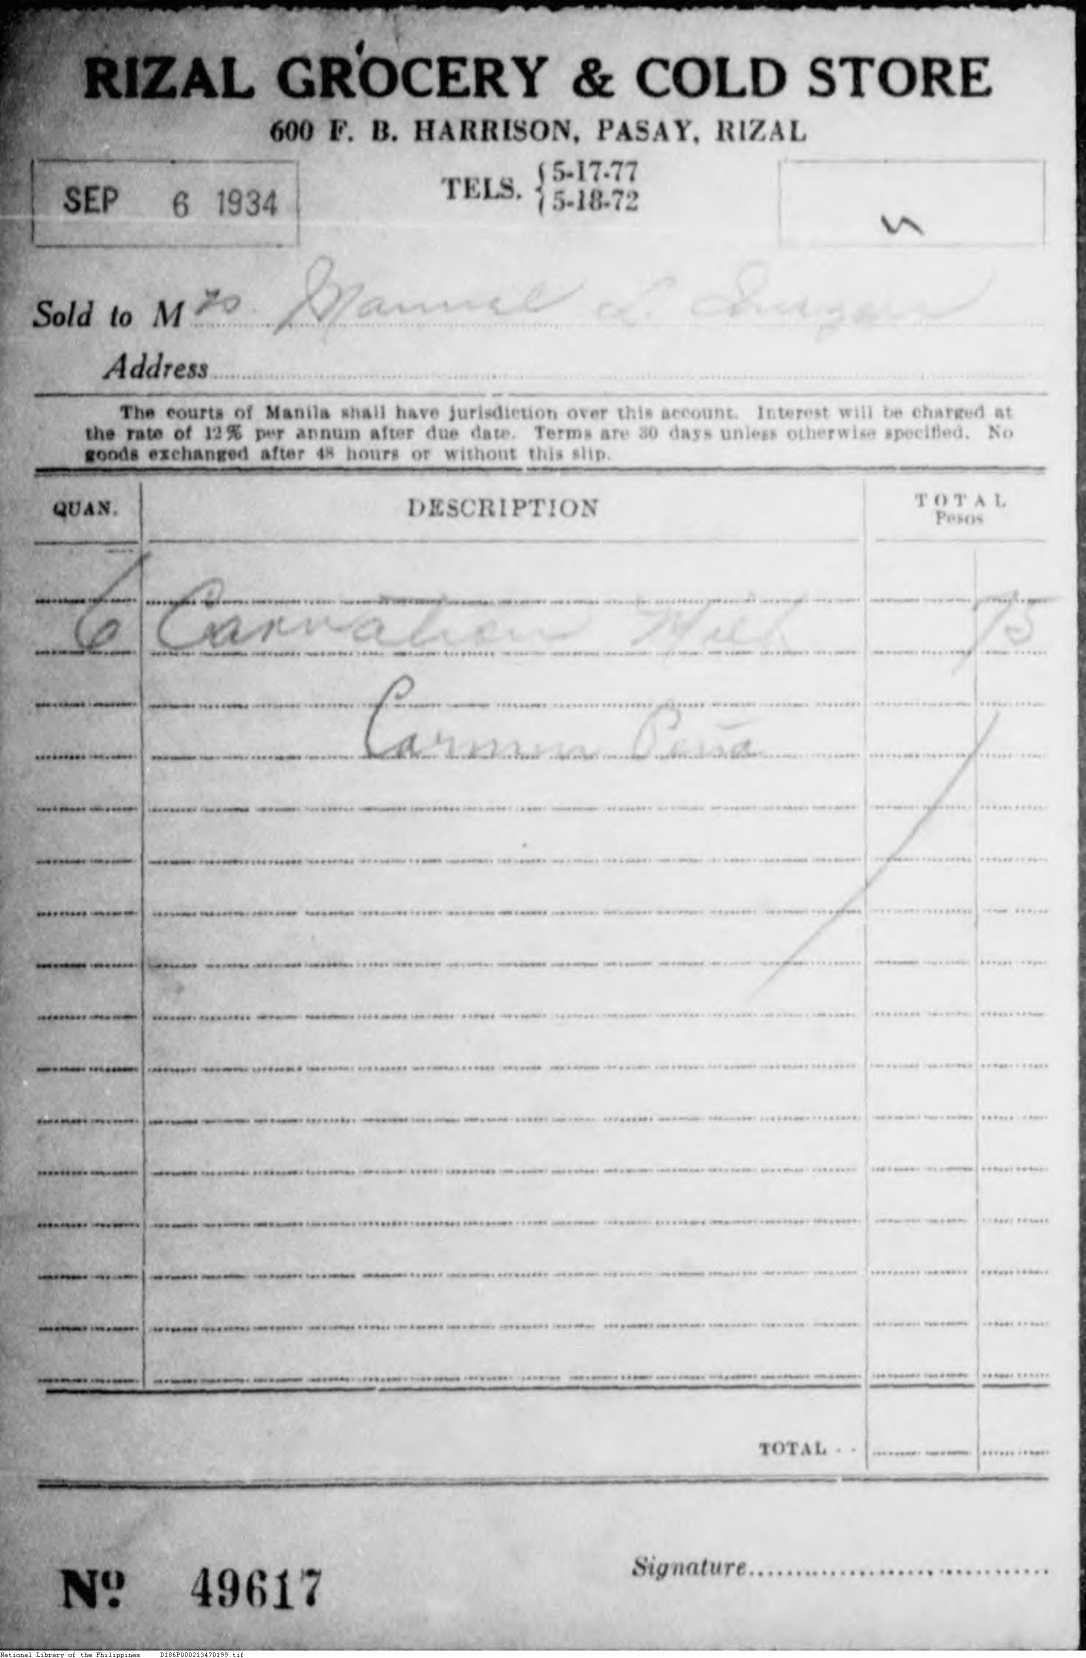 RIZAL GROCERY & COLD STORE
600 F. B. HARRISON, PASAY, RIZAL
SEP 6 1934
TELS. { 5-17-77
5-18-72
Sold to Mrs. Manuel L. Quezon
Address
The courts of Manila shall have jurisdiction over this account. Interest will be charged at
the rate of 12% per annum after due date. Terms are 30 days unless otherwise specified. No
goods exchanged after 48 hours or without this slip.
QUAN. DESCRIPTION TOTAL
Pesos
6 Carnation Milk 75
Carmen Peña
TOTAL - -
Signature
Nº 49617
National Library of the Philippines D186P000213470199.tif